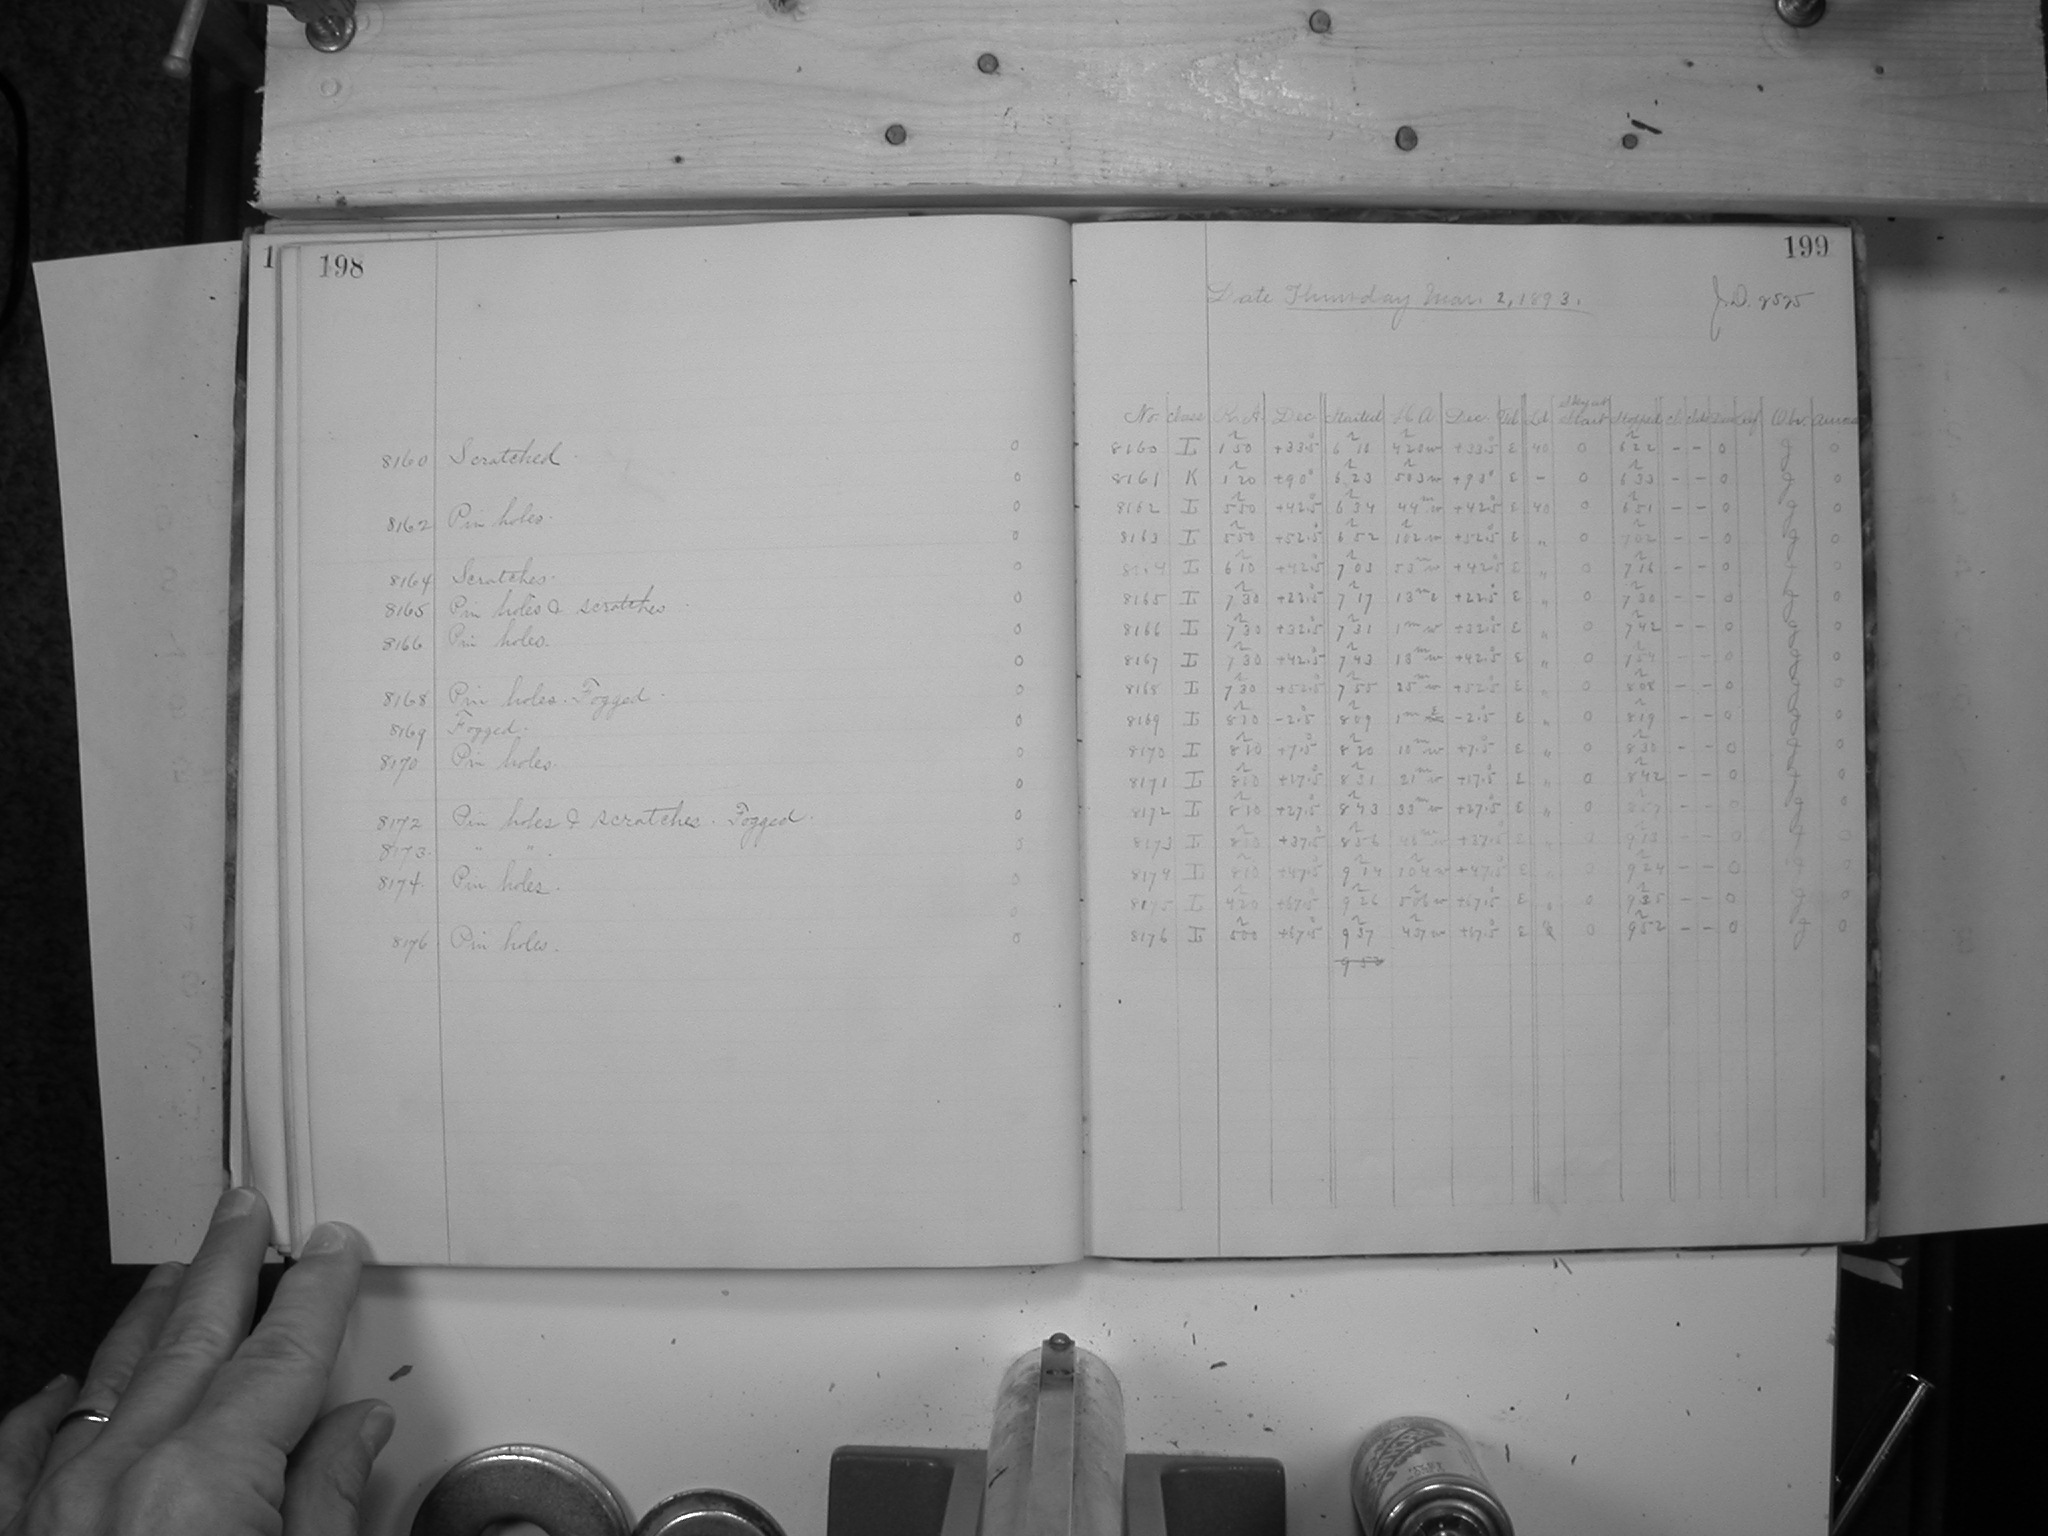 1 198
8160 Scratched
8162 Pin holes.
8164 Scratches.
8165 Pin holes & scratches
8166 Pin holes.
8168 Pin holes. Fogged
8169 Fogged.
8170 Pin holes.
8172 Pin holes & scratches. Fogged.
8173. " " .
8174. Pin holes.
8176 Pin holes.
199
Date Thursday Mar. 2, 1893.
J.D. 2525
No. Class R.A. Dec. Started H A Dec. Sky at Start Stopped Obs.
8160 I 1 50 +33.5 6 10 4 20 w +33.5 E 40 0 6 22 - - 0 0
8161 K 1 20 +90° 6 23 5 03 w +90° E - 0 6 33 - - 0 0
8162 I 5 50 +42.5 6 34 44 m w +42.5 E 40 0 6 51 - - 0 0
8163 I 5 50 +52.5 6 52 1 02 w +52.5 E " 0 7 02 - - 0 0
8164 I 6 10 +42.5 7 03 53 m w +42.5 E " 0 7 16 - - 0 0
8165 I 7 30 +22.5 7 17 13 m E +22.5 E " 0 7 30 - - 0 0
8166 I 7 30 +32.5 7 31 1 m w +32.5 E " 0 7 42 - - 0 0
8167 I 7 30 +42.5 7 43 13 m w +42.5 E " 0 7 54 - - 0 0
8168 I 7 30 +52.5 7 55 25 m w +52.5 E " 0 8 08 - - 0 0
8169 I 8 10 -2.5 8 09 1 m E -2.5 E " 0 8 19 - - 0 0
8170 I 8 10 +7.5 8 20 10 m w +7.5 E " 0 8 30 - - 0 0
8171 I 8 10 +17.5 8 31 21 m w +17.5 E " 0 8 42 - - 0 0
8172 I 8 10 +27.5 8 43 33 m w +27.5 E " 0 - - 0 0
8173 I 8 10 +37.5 8 56 46 m w +37.5 E " 0 9 13 - - 0 0
8174 I 8 10 +47.5 9 14 1 04 w +47.5 E " 0 9 24 - - 0 0
8175 I 4 20 +67.5 9 26 5 06 w +67.5 E " 0 9 35 - - 0 0
8176 I 5 00 +67.5 9 37 4 37 w +67.5 E 0 9 52 - - 0 0
9 53